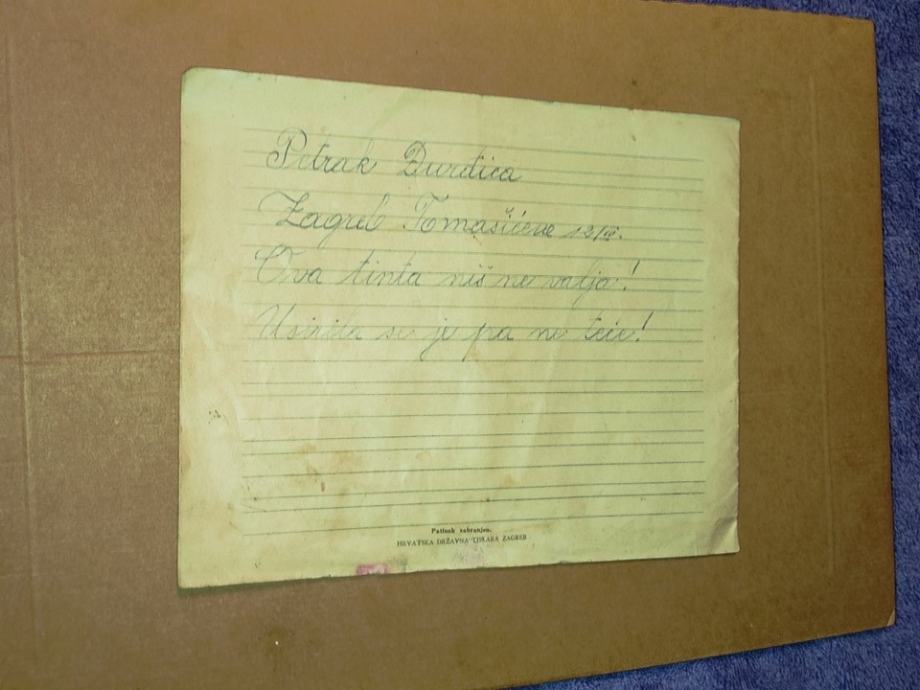 Petrak Đurđica
Zagreb Tomašićeva 12/III.
Ova tinta niš ne valja!
Usirila se je pa ne teče!
Pretisak zabranjen.
HRVATSKA DRŽAVNA TISKARA ZAGREB